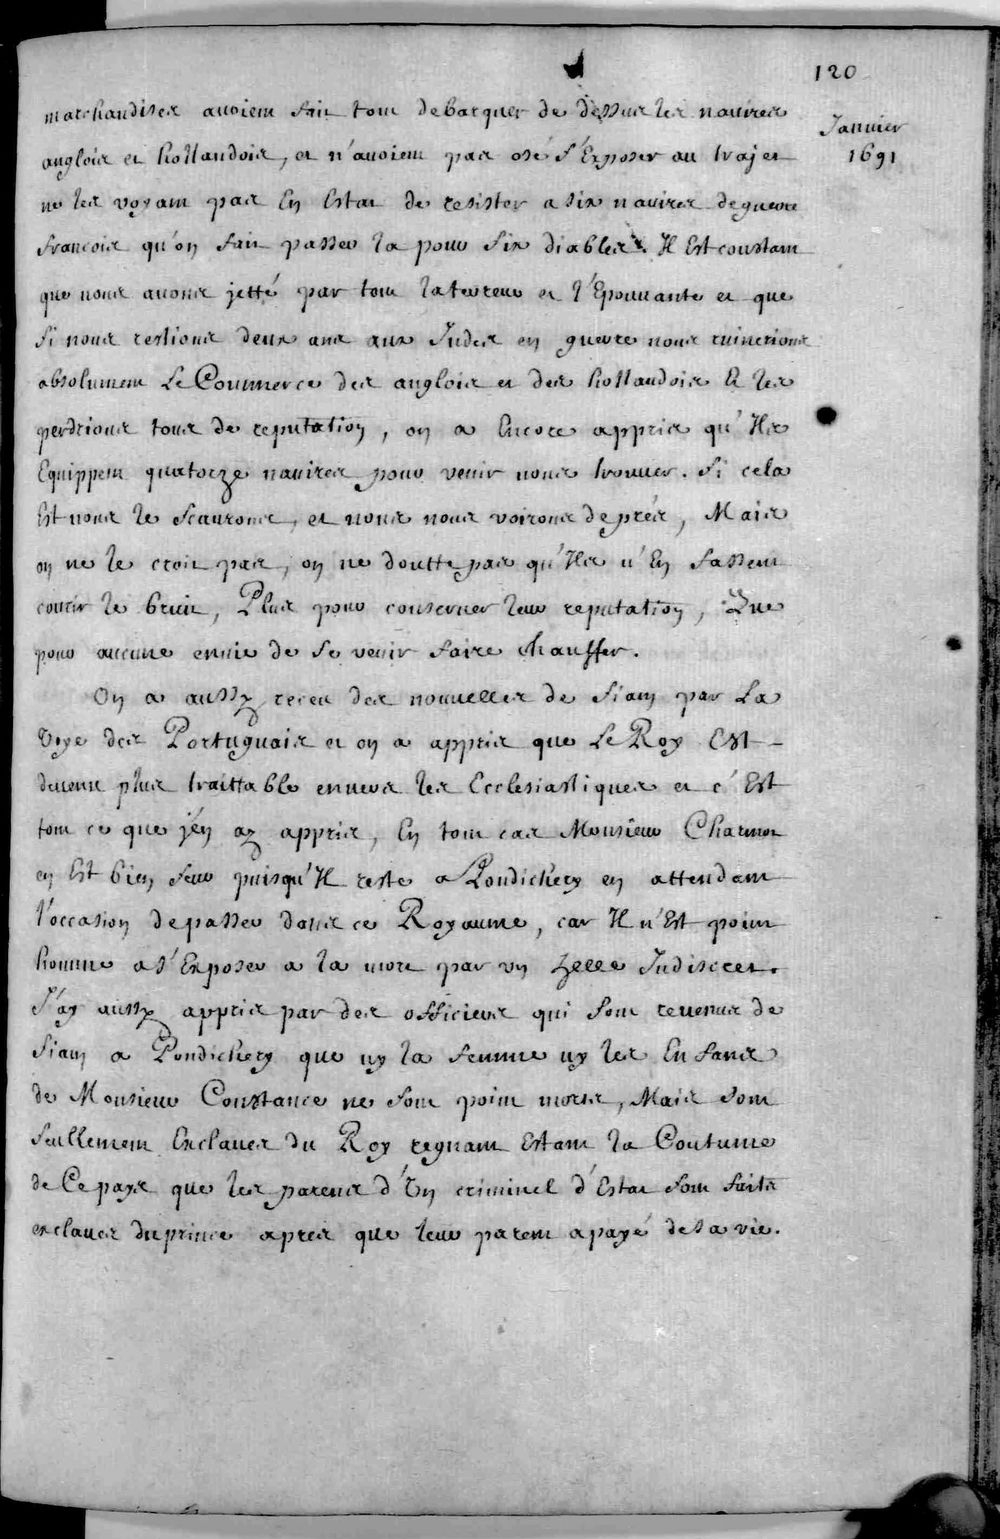 120
Janvier
1691
marchandises avoient fait tout debarquer de dessus les navires
anglois et hollandois, et n'avoient pas osé s'Exposer au trajet
ne les voyant pas En Estat de resister a six navires de guerre
francois qu'on fait passer la pour six diables. Il Est constant
que nous avons jetté par tout la terreur et l'Epouvante et que
si nous restions deux ans aux Indes en guerre nous ruinerions
absolument Le Commerce des anglois et des hollandois Et les
perdrions tous de reputation, on a Encore appris qu'Ils
Equippent quatorze navires pour venir nous trouver. Si cela
Est nous le scaurons, et nous nous voirons de prés, Mais
on ne le croit pas, on ne doutte pas qu'Ils n'En fassent
courir le bruit, Plus pour conserver leur reputation, Que
pour aucune envie de se venir faire chauffer.
On a aussy receu des nouvelles de Siam par La
Voye des Portuguais et on a appris que Le Roy Est
devenu plus traittable envers les Ecclesiastiques et c'Est
tout ce que j'en ay appris, En tout cas Monsieur Charmot
en Est bien seur puisqu'Il reste a Pondichery en attendant
l'occasion de passer dans ce Royaume, car Il n'Est point
homme a s'Exposer a la mort par un zelle Indiscret.
J'ay aussy appris par des officiers qui sont revenus de
Siam a Pondichery que ny la femme ny les Enfans
de Monsieur Constance ne sont point morts, Mais sont
seullement Esclaves du Roy regnant Estant la Coutume
de Ce pays que les parens d'Un criminel d'Estat sont faits
esclaves du prince apres que leur parent a payé de sa vie.